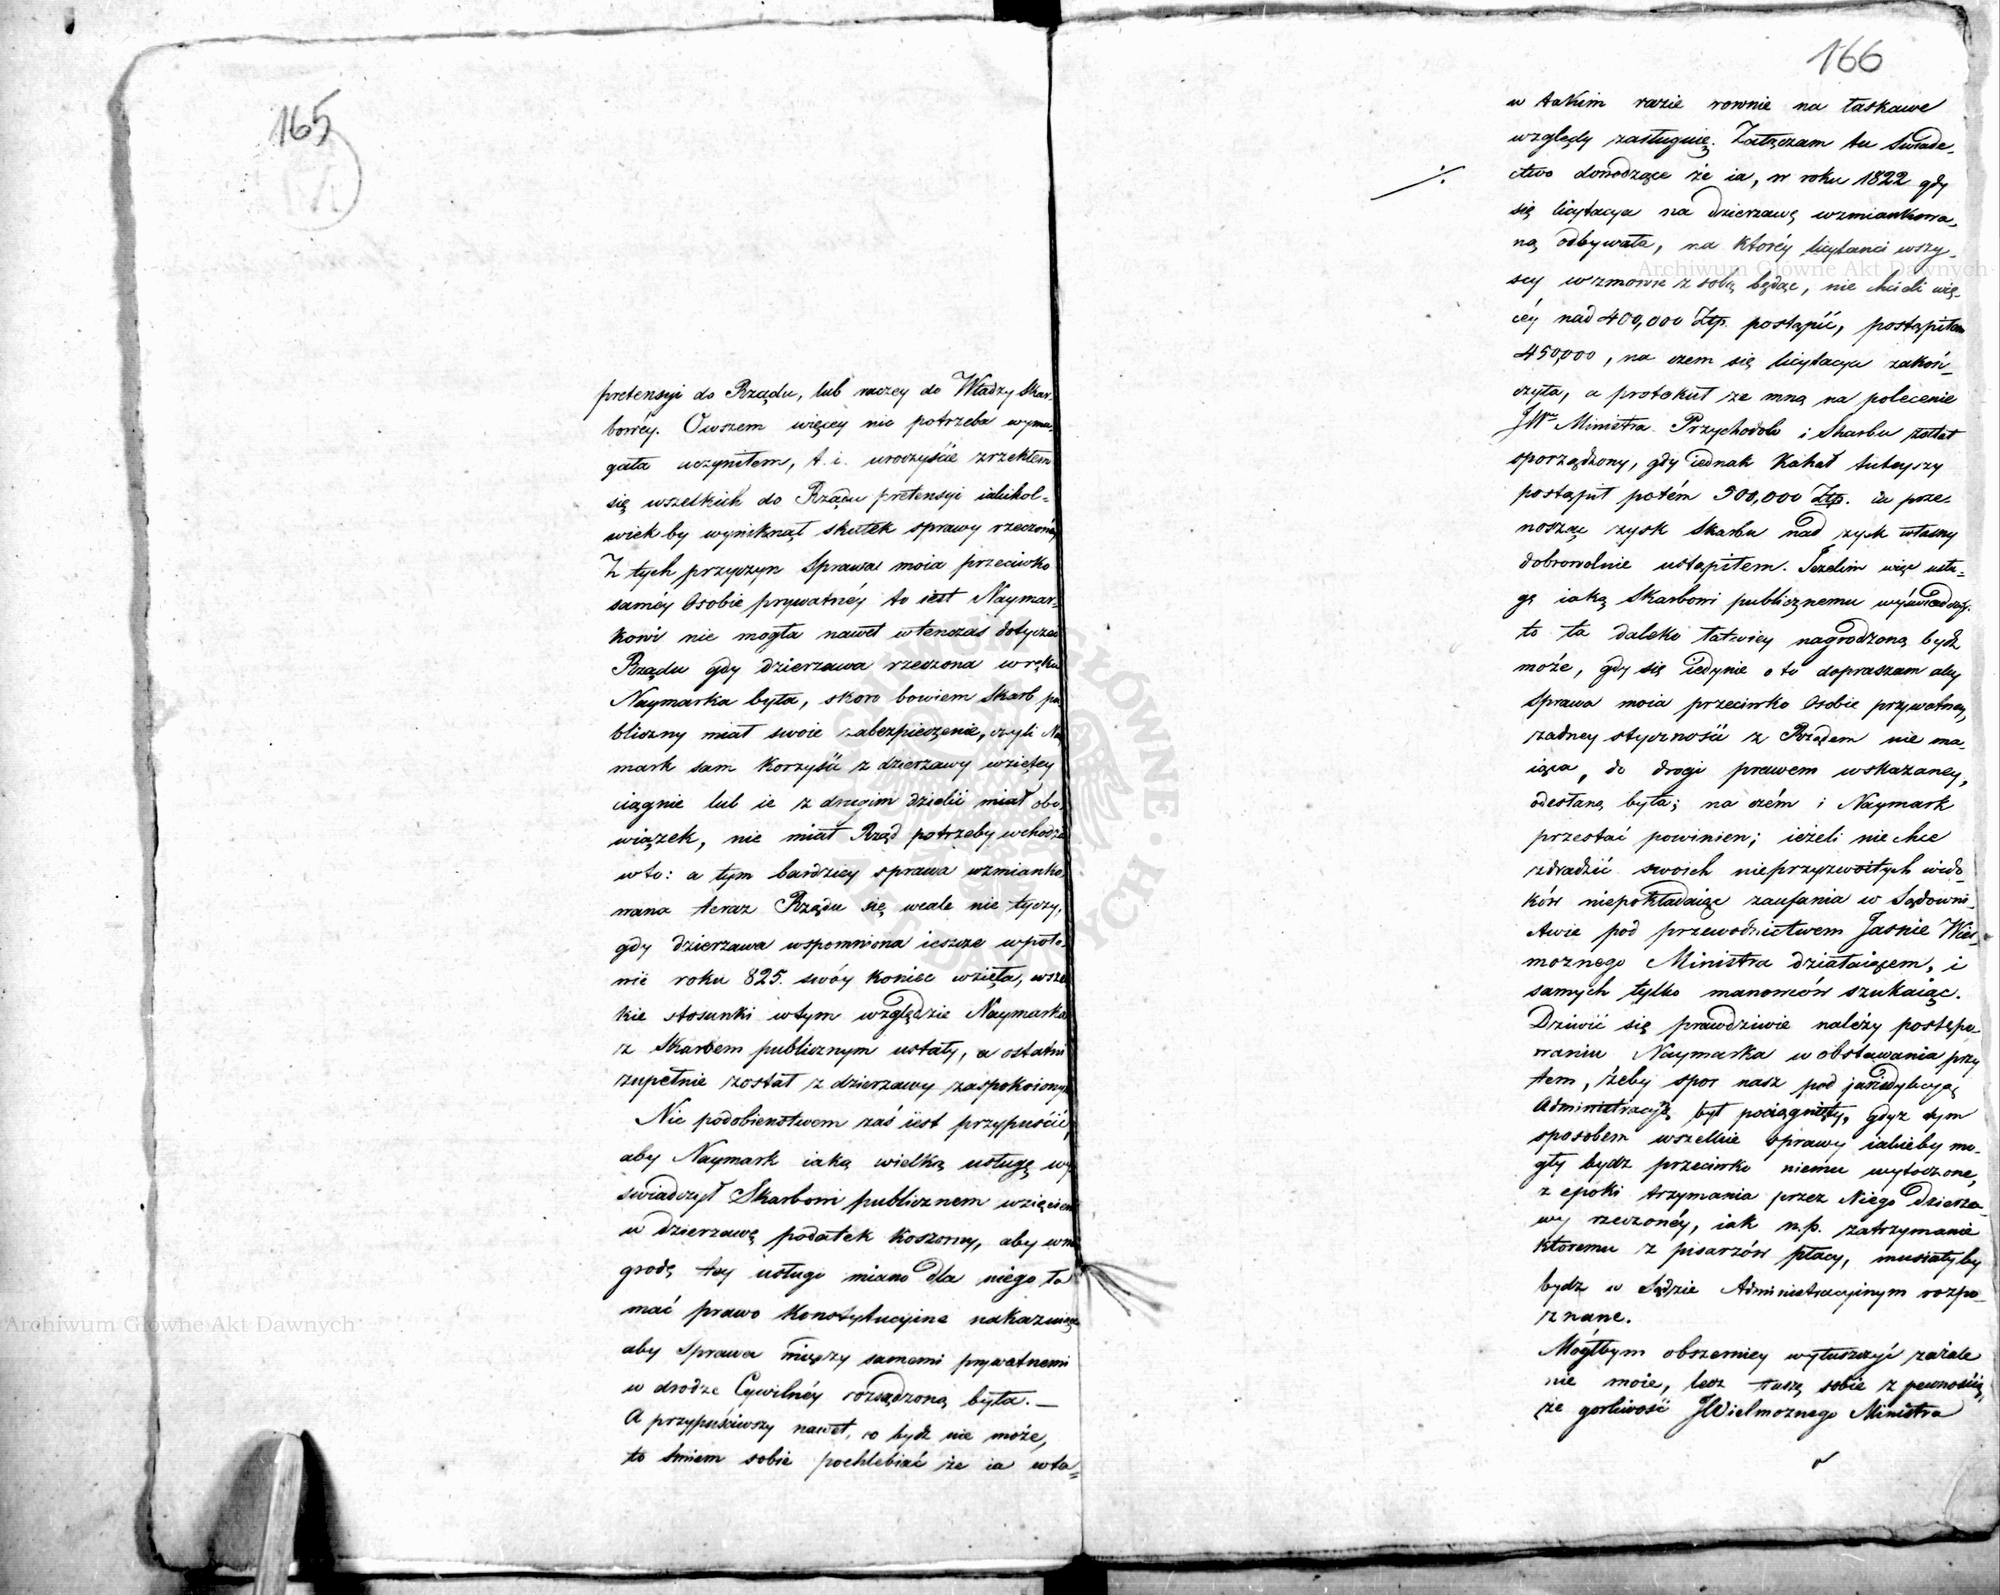 165
pretensyi do Rządu, lub raczey do Władzy Skar-
bowéy. Owszem więcey nic potrzeba wyma-
gała uczyniłem, t. i. uroczyście zrzekłem
się wszelkich do Rządu pretensyi iakikol=
wiek by wyniknął skutek sprawy rzeczonéy
Z tych przyczyn Sprawa moia przeciwko
saméy Osobie prywatnéy to iest Naymar=
kowi nie mogła nawet wtenczas dotyczeć
Rządu gdy dzierzawa rzeczona w ręku
Naymarka była, skoro bowiem Skarb pu
bliczny miał swoie zabezpieczenie, czyli Na
mark sam korzyść z dzierzawy wziętey
ciągnie lub ie z drugim dzielić miał obo
wiązek, nie miał Rząd potrzeby wchodzić
w to: a tym bardziey sprawa wzmianko
wana teraz Rządu się wcale nie tyczy,
gdy dzierzawa wspomniona ieszcze w poło
wie roku 825. swóy koniec wzięła, wszel
kie stosunki w tym względzie Naymarka
z Skarbem publicznym ustały, a ostatni
zupełnie został z dzierzawy zaspokoionym
Nic podobienstwem zaś iest przypuścić,
aby Naymark iaką wielką usługę wy
świadczył Skarbowi publicznem wzięciem
w dzierzawę podatek koszerny, aby w na
grodę tey usługi miano dla niego ła
mać prawo konstytucyine nakazuiące
aby sprawa między samemi prywatnemi
w drodze Cywilnéy rozsądzoną była. —
A przypuściwszy nawet, co bydź nie może,
to śmiem sobie pochlebiać że ia w ta=
166
w takim razie rownie na łaskawe
względy zasługuię. Załączam tu Swiade-
ctwo dowodzące że ia, w roku 1822 gdy
się licytacya na dzierzawę wzmiankowa-
ną odbywała, na któréy licytanci wszy-
scy w zmowie z sobą będąc, nie chcieli wię-
céy nad 400,000 Złp. postąpić, postąpiłem
450,000, na czem się licytacya zakoń-
czyła, a protokuł ze mną na polecenie
JWo Ministra Przychodow i Skarbu został
sporządzony, gdy iednak Kahał tuteyszy
postąpił potém 500,000 Złp. ia prze-
nosząc zysk Skarbu nad zysk własny
dobrowolnie ustąpiłem. Jeżelim więc usłu=
gę iaką Skarbowi publicznemu wyświadczył.
to ta daleko łatwiey nagrodzoną bydź
może, gdy się iedynie o to dopraszam aby
sprawa moia przeciwko Osobie prywatney,
żadney styczności z Rządem nie ma-
iąca, do drogi prawem wskazaney,
odesłaną była; na czém i Naymark
przestać powinien; ieżeli nie chce
zdradzić swoich nieprzyzwoitych wido-
ków niepokładaiąc zaufania w Sądowni-
ctwie pod przewodnictwem Jaśnie Wiel-
możnego Ministra działaiącem, i
samych tylko manowców szukaiąc.
Dziwić się prawdziwie należy postępo
waniu Naymarka w obstawania przy
tem, żeby spor nasz pod jurisdykcyą
Administracyą był pociągnięty, gdyż tym
sposobem wszelkie sprawy iakieby mo-
gły bydź przeciwko niemu wytoczone,
z epoki trzymania przez Niego dzierża-
wy rzeczonéy, iak n.p. zatrzymanie
ktoremu z pisarzów płacy, musiałyby
bydz w Sądzie Administracyinym rozpo-
znane.
Mógłbym obszerniey wyłuszczyć zażale
nie moie, lecz tuszę sobie z pewnością,
że gorliwość JWielmoznego Ministra
Archiwum Główne Akt Dawnych
Archiwum Główne Akt Dawnych